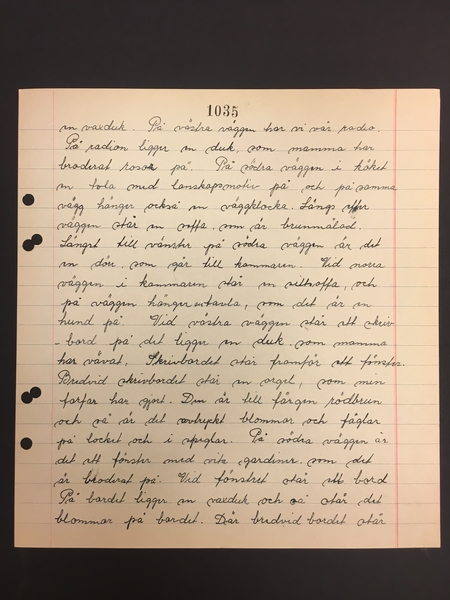 1035
en vaxduk. På västra väggen har vi vår radio.
På radion ligger en duk, som mamma har
broderat rosor på. På södra väggen i köket
en tavla med lanskapsmotiv på och på samma
vägg hänger också en väggklocka. Längs efter
väggen står en soffa, som är brunmålad.
Längst till vänster på södra väggen är det
en dörr, som går till kammaren. Vid norra
väggen i kammaren står en siltsoffa, och
på väggen hänger en tavla, som det är en
hund på. Vid västra väggen står ett skriv
-bord på det ligger en duk som mamma
har vävat. Skrivbordet står framför ett fönster.
Bredvid skrivbordet står en orgel, som min
farfar har gjort. Den är till färgen rödbrun
och så är det avtryckt blommor och fåglar
på locket och i speglar. På södra väggen är
det ett fönster med vita gardiner som det
är broderat på. Vid fönstret står ett bord
På bordet ligger en vaxduk och så står det
blommor på bordet. Där bredvid bordet står